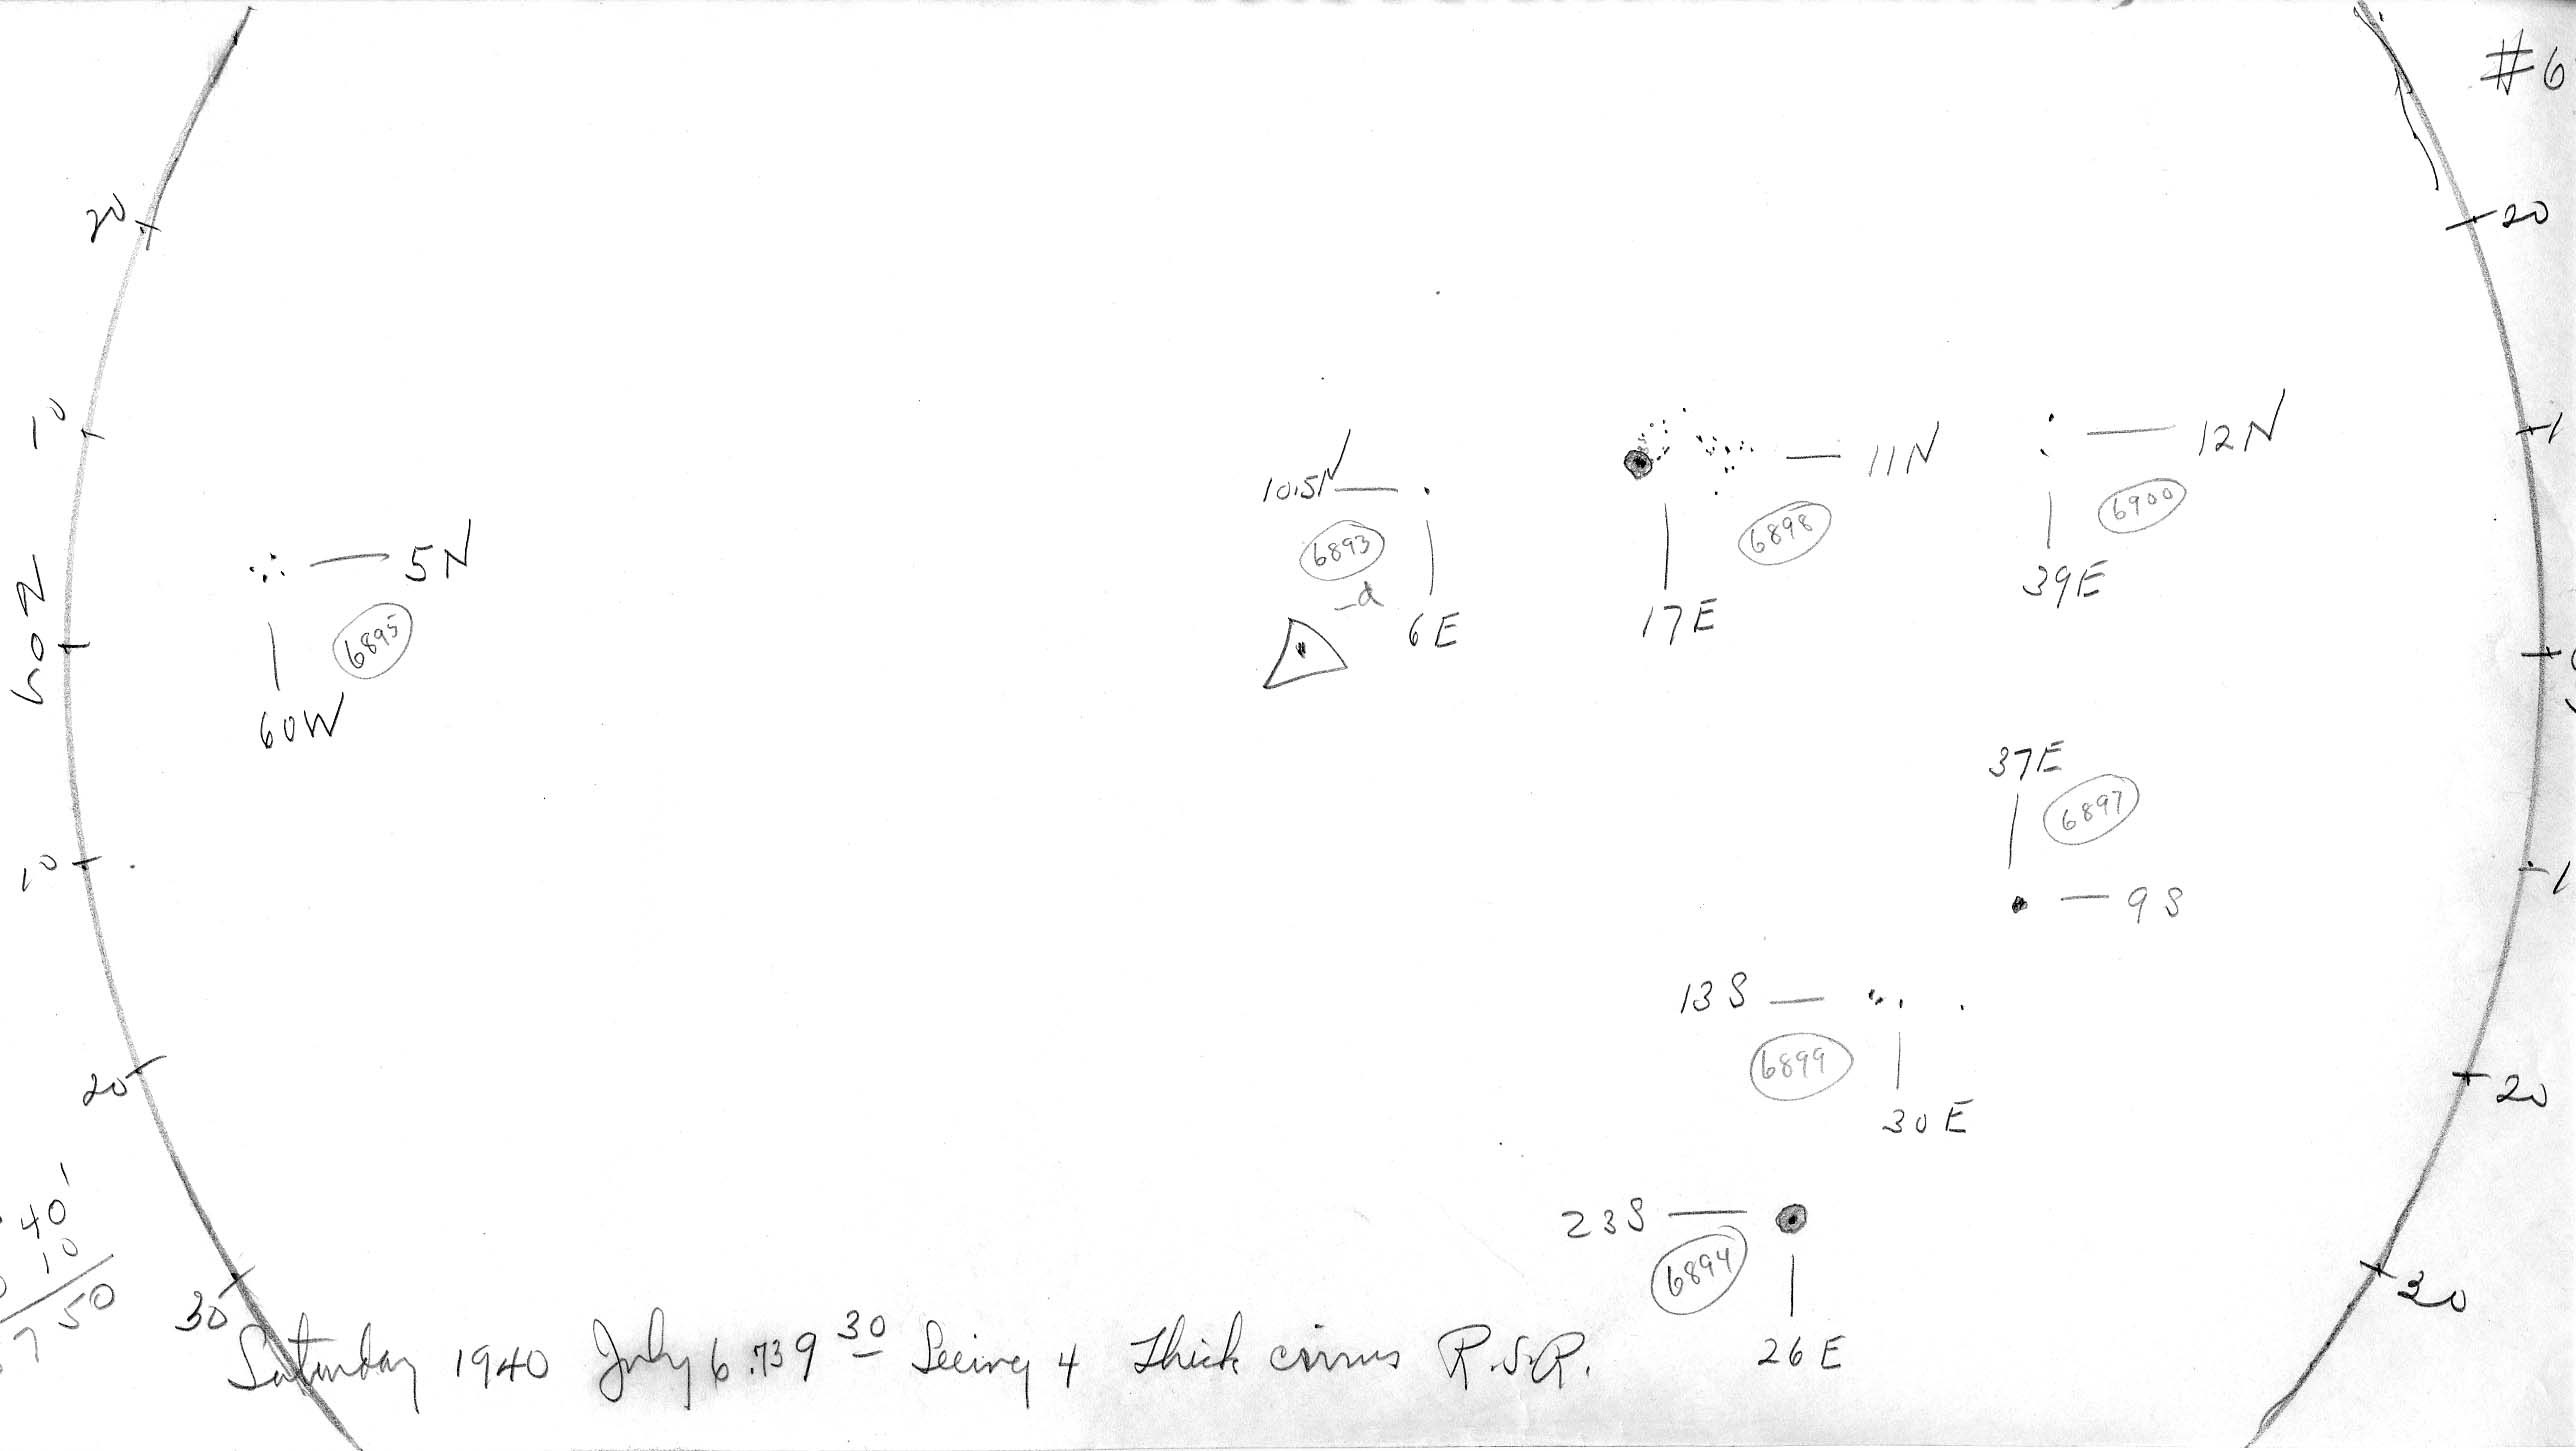 #6
20
20
10
12N
11N
10.5N
6900
6898
6893
5N
39E
-d
6E
17E
6895
NOZ
60W
37E
6897
10
9S
13S
6899
20
20
30E
40
10
50
7
23S
6894
30
30
Saturday 1940 July 6.73 9 30 Seeing 4 Thick cirrus R.S.R.
26E